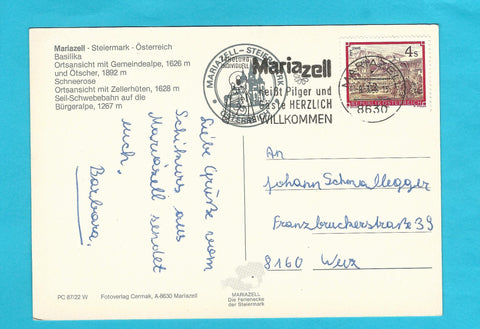 Mariazell - Steiermark - Österreich
Basilika
Ortsansicht mit Gemeindealpe, 1626 m
und Ötscher, 1892 m
Schneerose
Ortsansicht mit Zellerhüten, 1628 m
Seil-Schwebebahn auf die
Bürgeralpe, 1267 m
MARIAZELL - STEIERMARK
ÖSTERREICH
Mariazell
heißt Pilger und
Gäste HERZLICH
WILLKOMMEN
4s
REPUBLIK ÖSTERREICH
8630
Liebe Grüße vom
Schikurs aus
Mariazell sendet
euch.
Barbara.
An
Johann Schmallegger
Franzbruckerstraße 39
8160 Weiz
PC 87/22 W Fotoverlag Cermak, A-8630 Mariazell
MARIAZELL
Die Ferienecke
der Steiermark